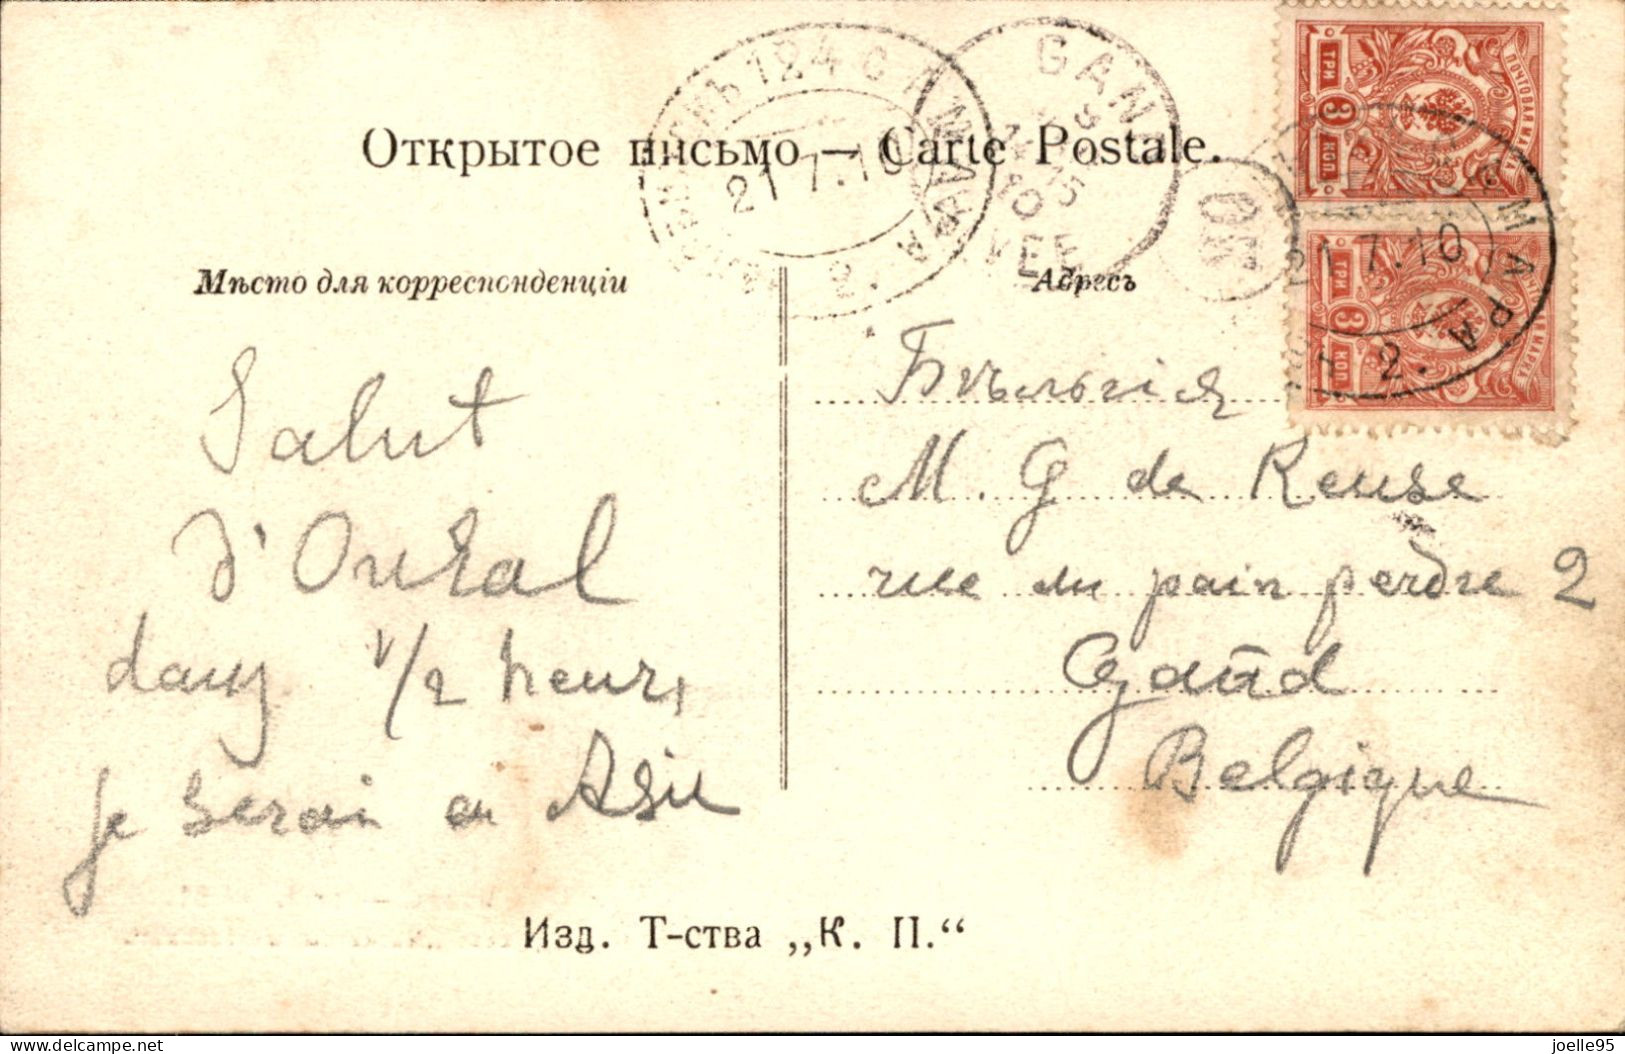 Открытое письмо — Carte Postale.
ЧЕЛЯБИНСКЪ 124 САМАРА
21 7.10
2.
GAND
10
ПОЧТОВАЯ МАРКА
ТРИ 3 КОП.
САМАРА
21.7.10
2.
ПОЧТОВАЯ МАРКА
ТРИ 3 КОП.
Мѣсто для корреспонденціи
Адресъ
Salut
d'Oural
dans 1/2 heure,
je serai en Asie
Бельгія
M. G de Reuse
rue du pain perdre 2
Gand
Belgique
Изд. Т-ства „К. П.“
delcampe.net
joelle95